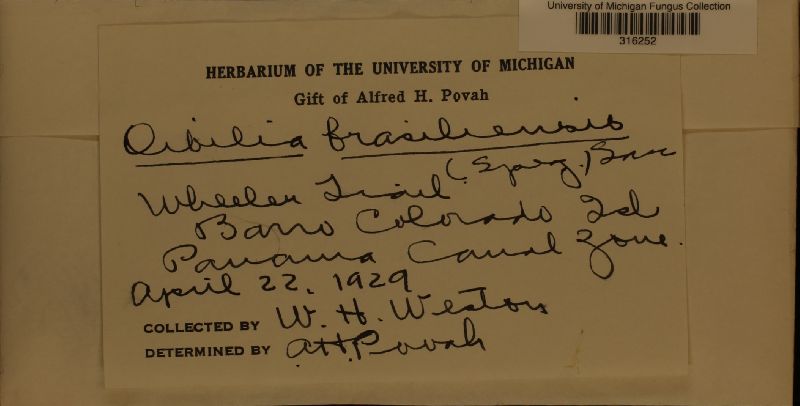 University of Michigan Fungus Collection
316252
HERBARIUM OF THE UNIVERSITY OF MICHIGAN
Gift of Alfred H. Povah
Cibilia brasiliensis
(Speg.)
Wheeler Trail
Barro Colorado Isl
Panama Canal Zone.
April 22. 1929
COLLECTED BY W. H. Weston
DETERMINED BY A.H. Povah